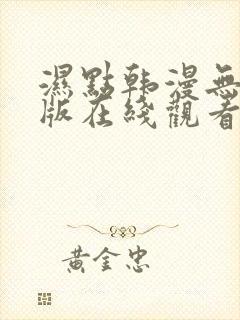 濕點韩漫無
版在綫觀看
黄金忠